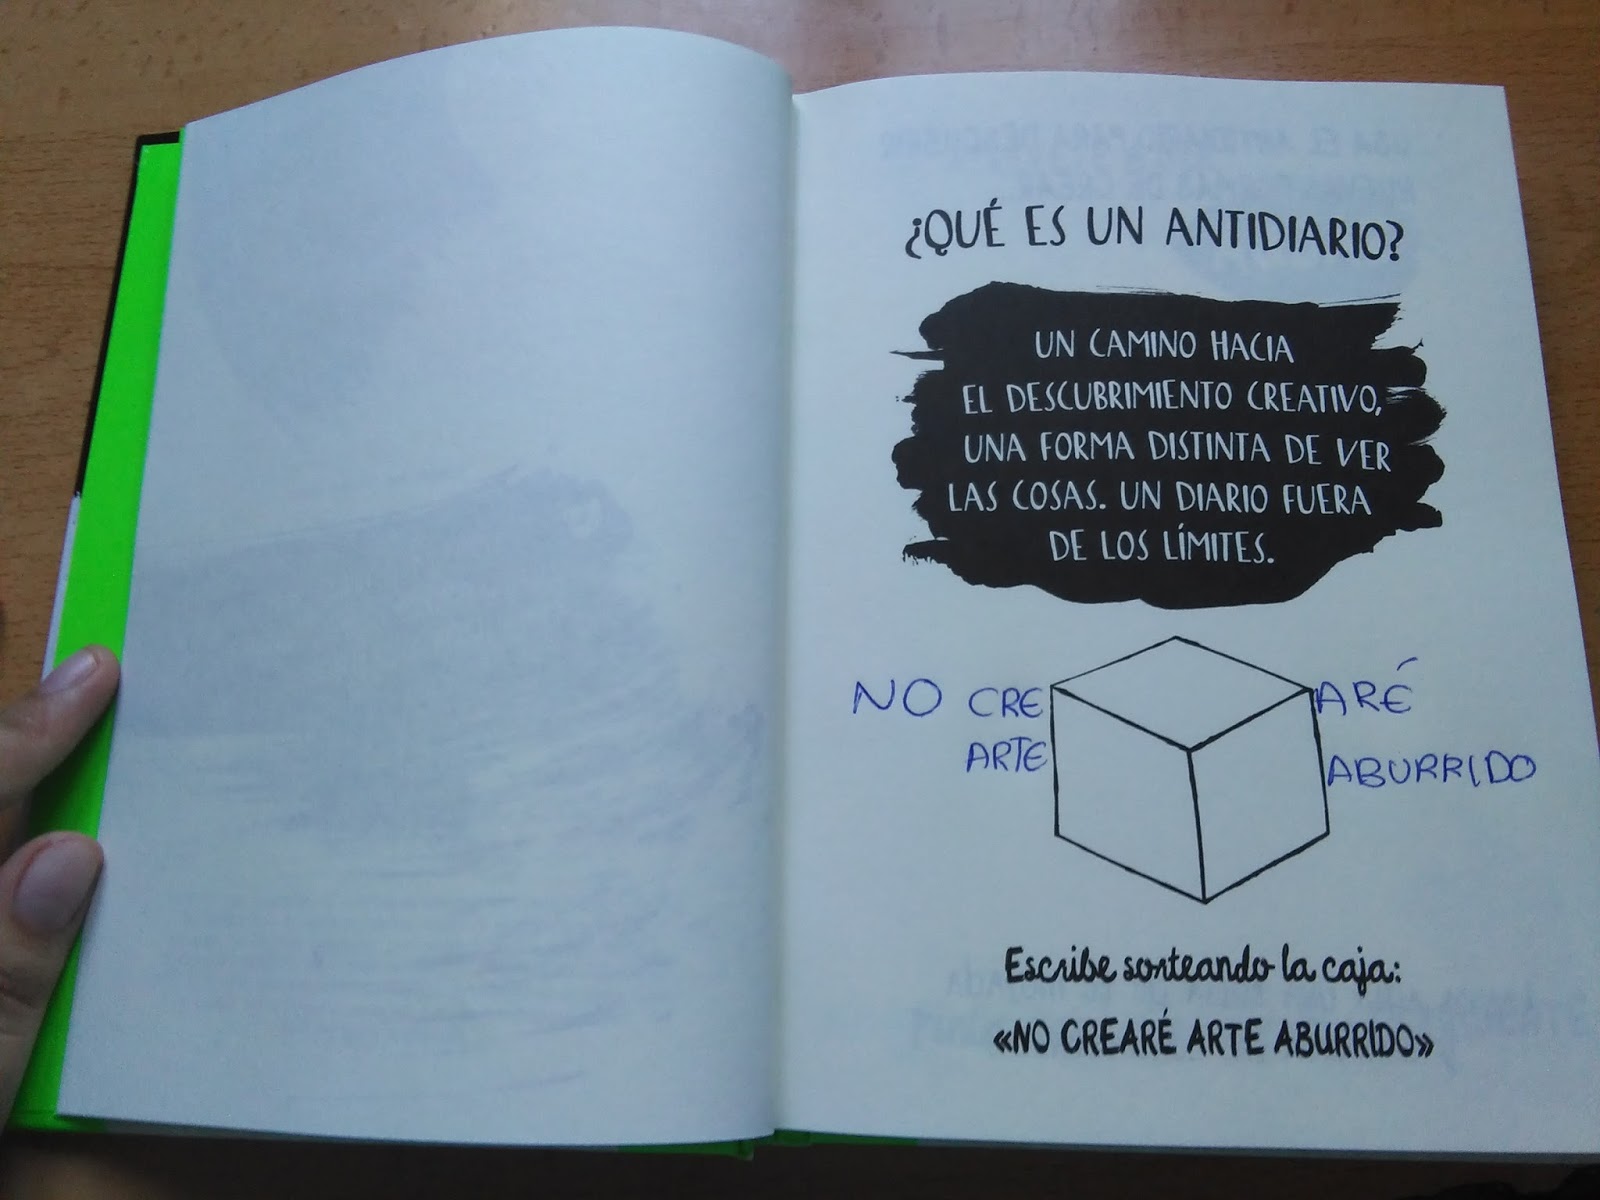 ¿QUÉ ES UN ANTIDIARIO?
UN CAMINO HACIA
EL DESCUBRIMIENTO CREATIVO,
UNA FORMA DISTINTA DE VER
LAS COSAS. UN DIARIO FUERA
DE LOS LÍMITES.
NO CRE ARÉ
ARTE ABURRIDO
Escribe sorteando la caja:
«NO CREARÉ ARTE ABURRIDO»